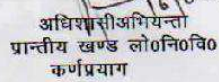 अधिशासीअभियन्ता
प्रान्तीय खण्ड लो०नि०वि०
कर्णप्रयाग